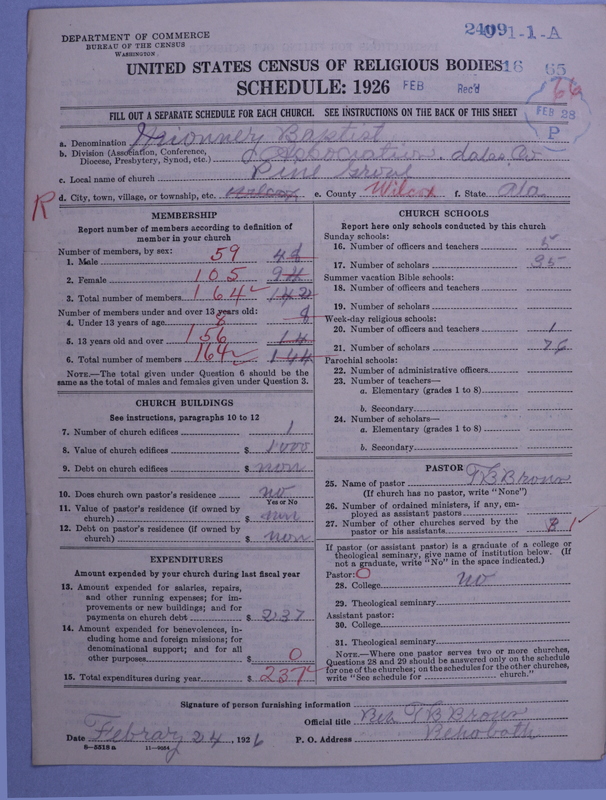 DEPARTMENT OF COMMERCE
BUREAU OF THE CENSUS
WASHINGTON
2409 1-1-A
UNITED STATES CENSUS OF RELIGIOUS BODIES
16 65
SCHEDULE: 1926
FEB Rec'd
66
FEB 28
P
FILL OUT A SEPARATE SCHEDULE FOR EACH CHURCH. SEE INSTRUCTIONS ON THE BACK OF THIS SHEET
a. Denomination Baptist
b. Division (Association, Conference, Diocese, Presbytery, Synod, etc.) Association. dalas. Co
c. Local name of church Pine Grove
R
d. City, town, village, or township, etc. Wilcox e. County Wilcox f. State Ala
MEMBERSHIP
Report number of members according to definition of member in your church
Number of members, by sex:
1. Male 59 48
2. Female 105 94
3. Total number of members 164 142
Number of members under and over 13 years old:
4. Under 13 years of age 8 8
5. 13 years old and over 156 14
6. Total number of members 164 144
NOTE.—The total given under Question 6 should be the same as the total of males and females given under Question 3.
CHURCH BUILDINGS
See instructions, paragraphs 10 to 12
7. Number of church edifices 1
8. Value of church edifices $ 1000
9. Debt on church edifices $ non
10. Does church own pastor's residence no
Yes or No
11. Value of pastor's residence (if owned by church) $ non
12. Debt on pastor's residence (if owned by church) $ non
EXPENDITURES
Amount expended by your church during last fiscal year
13. Amount expended for salaries, repairs, and other running expenses; for improvements or new buildings; and for payments on church debt $ 237
14. Amount expended for benevolences, including home and foreign missions; for denominational support; and for all other purposes $ 0
15. Total expenditures during year $ 237
CHURCH SCHOOLS
Report here only schools conducted by this church
Sunday schools:
16. Number of officers and teachers 5
17. Number of scholars 35
Summer vacation Bible schools:
18. Number of officers and teachers
19. Number of scholars
Week-day religious schools:
20. Number of officers and teachers 1
21. Number of scholars 76
Parochial schools:
22. Number of administrative officers
23. Number of teachers—
a. Elementary (grades 1 to 8)
b. Secondary
24. Number of scholars—
a. Elementary (grades 1 to 8)
b. Secondary
PASTOR
25. Name of pastor T B Brown
(If church has no pastor, write "None")
26. Number of ordained ministers, if any, employed as assistant pastors
27. Number of other churches served by the pastor or his assistants 1
If pastor (or assistant pastor) is a graduate of a college or theological seminary, give name of institution below. (If not a graduate, write "No" in the space indicated.)
Pastor: O
28. College no
29. Theological seminary
Assistant pastor:
30. College
31. Theological seminary
NOTE.—Where one pastor serves two or more churches, Questions 28 and 29 should be answered only on the schedule for one of the churches; on the schedules for the other churches, write "See schedule for church."
Signature of person furnishing information
Official title Rev. T B Brown
Date Febrary 24, 1926 P. O. Address Rehoboth
8—5518 a 11—9584